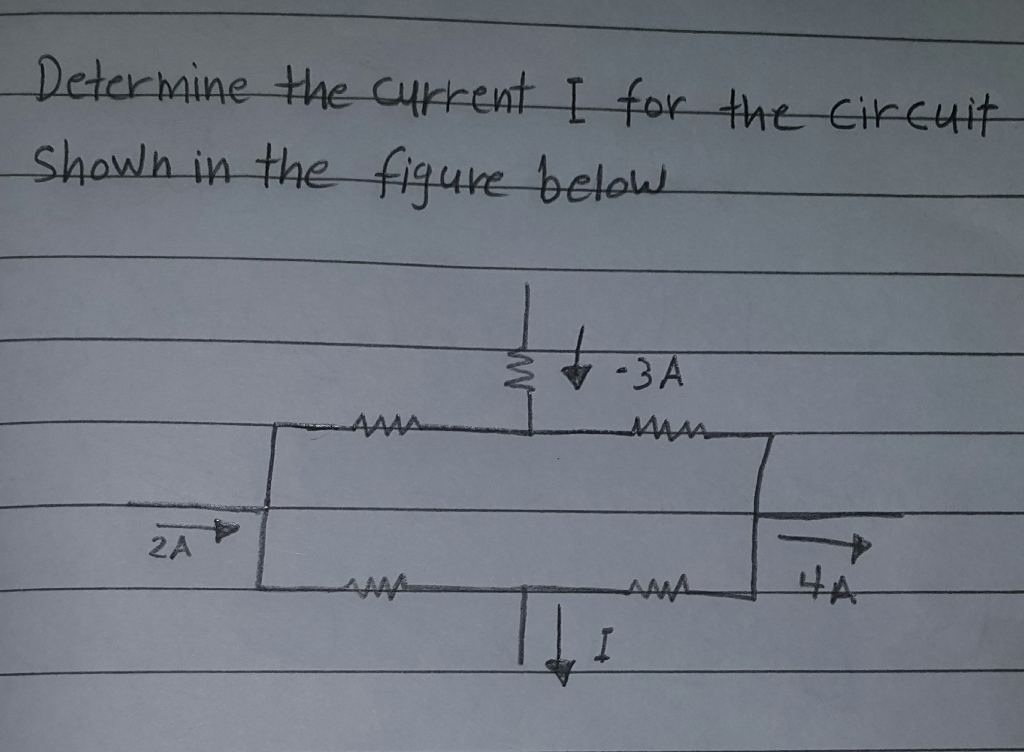 Determine the current I for the circuit
shown in the figure below
-3A
2A
4A
I